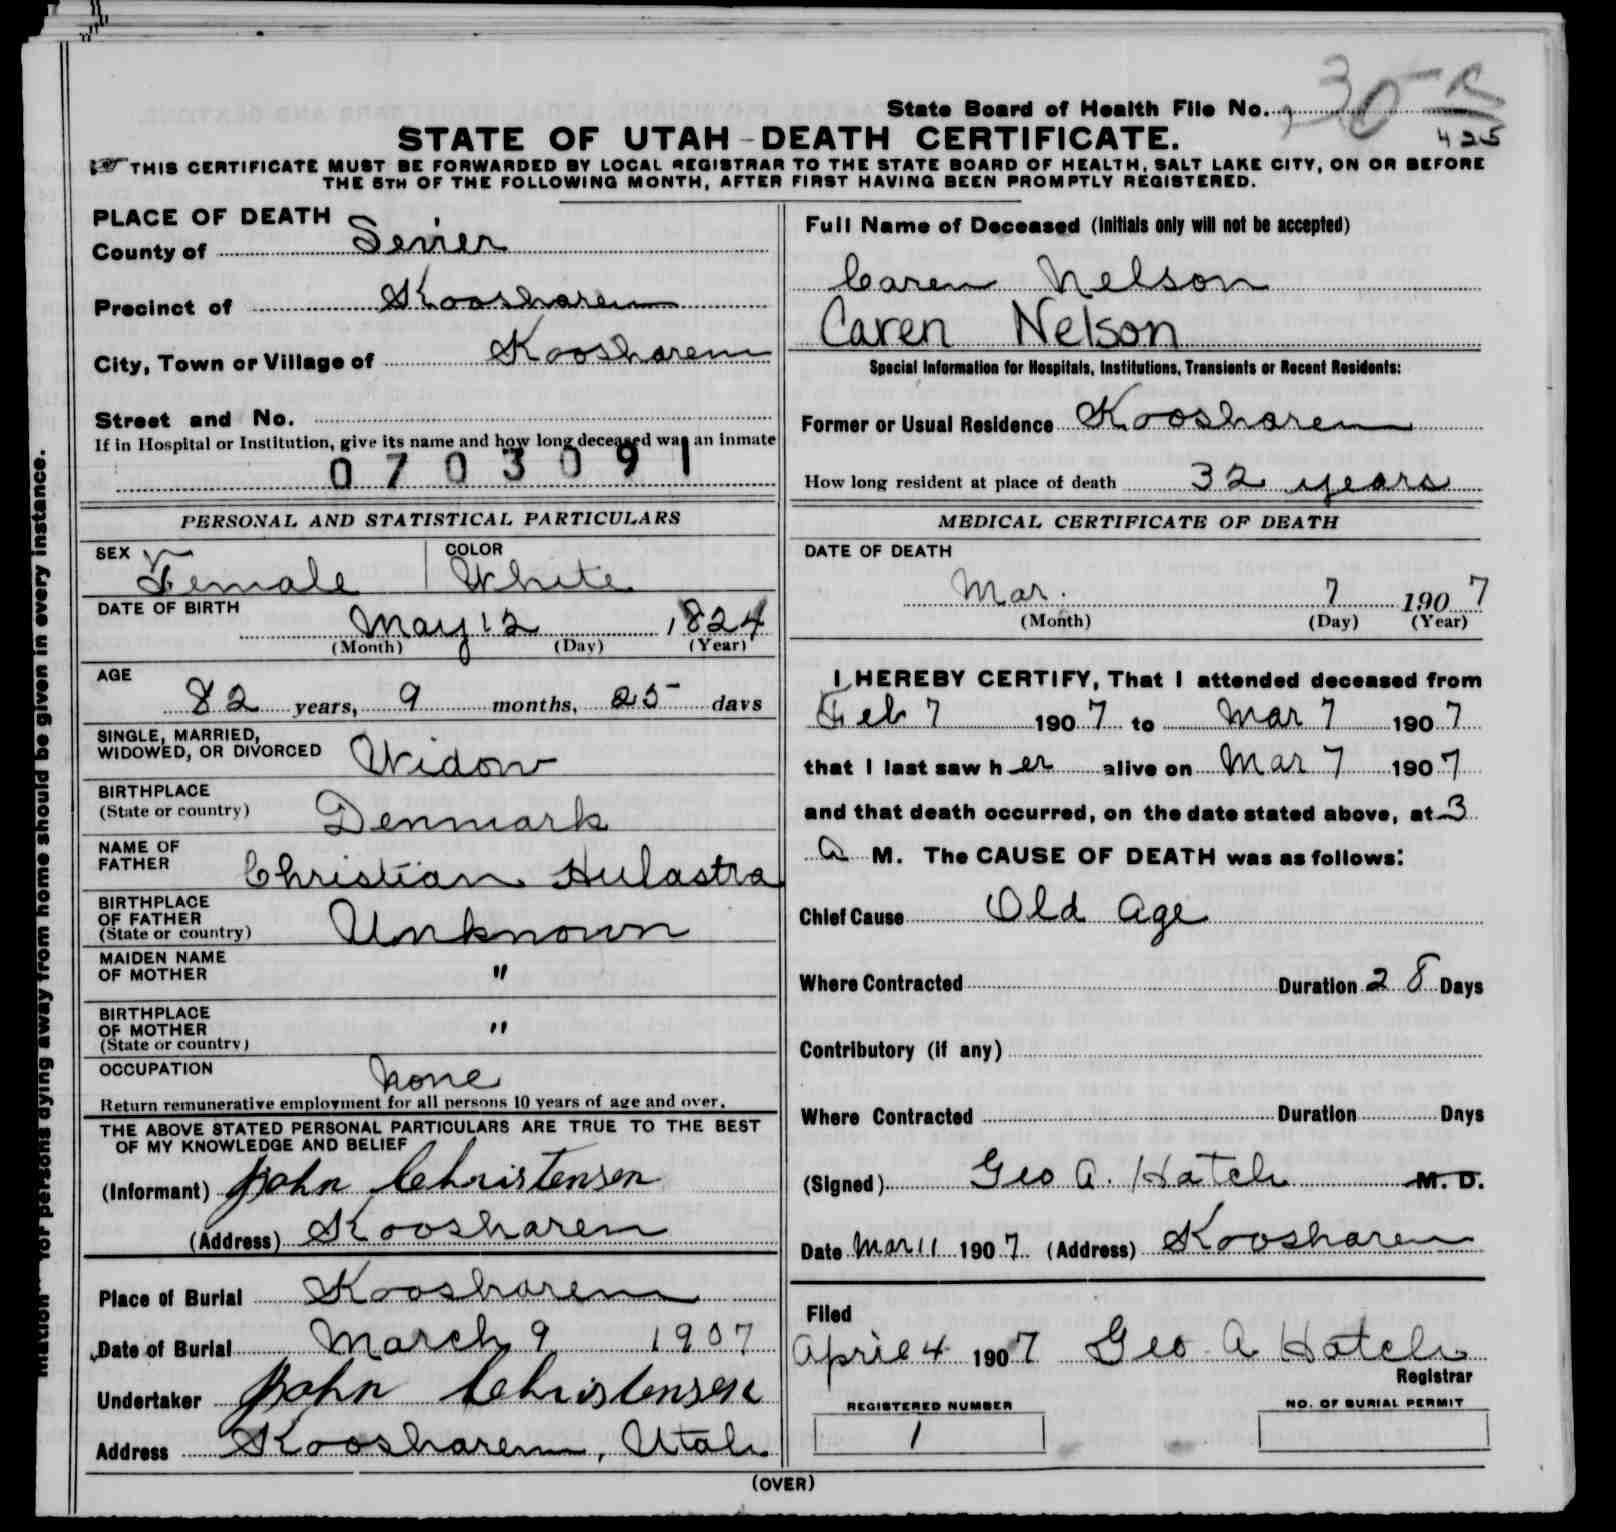 State Board of Health File No. 30-R
425
STATE OF UTAH-DEATH CERTIFICATE.
☞ THIS CERTIFICATE MUST BE FORWARDED BY LOCAL REGISTRAR TO THE STATE BOARD OF HEALTH, SALT LAKE CITY, ON OR BEFORE
THE 5TH OF THE FOLLOWING MONTH, AFTER FIRST HAVING BEEN PROMPTLY REGISTERED.
PLACE OF DEATH
County of Sevier
Precinct of Koosharem
City, Town or Village of Koosharem
Street and No.
If in Hospital or Institution, give its name and how long deceased was an inmate
0703091
PERSONAL AND STATISTICAL PARTICULARS
SEX Female COLOR White
DATE OF BIRTH
May 12 1824
(Month) (Day) (Year)
AGE
82 years, 9 months, 25 days
SINGLE, MARRIED,
WIDOWED, OR DIVORCED Widow
BIRTHPLACE
(State or country) Denmark
NAME OF
FATHER Christian Hulastra
BIRTHPLACE
OF FATHER
(State or country) Unknown
MAIDEN NAME
OF MOTHER "
BIRTHPLACE
OF MOTHER
(State or country) "
OCCUPATION None
Return remunerative employment for all persons 10 years of age and over.
THE ABOVE STATED PERSONAL PARTICULARS ARE TRUE TO THE BEST
OF MY KNOWLEDGE AND BELIEF
(Informant) John Christensen
(Address) Koosharem
Place of Burial Koosharem
Date of Burial March 9 1907
Undertaker John Christensen
Address Koosharem, Utah
Full Name of Deceased (Initials only will not be accepted)
Caren Nelson
Caren Nelson
Special Information for Hospitals, Institutions, Transients or Recent Residents:
Former or Usual Residence Koosharem
How long resident at place of death 32 years
MEDICAL CERTIFICATE OF DEATH
DATE OF DEATH
Mar. 7 1907
(Month) (Day) (Year)
I HEREBY CERTIFY, That I attended deceased from
Feb 7 1907 to Mar 7 1907
that I last saw her alive on Mar 7 1907
and that death occurred, on the date stated above, at 3
A M. The CAUSE OF DEATH was as follows:
Chief Cause Old Age
Where Contracted Duration 28 Days
Contributory (if any)
Where Contracted Duration Days
(Signed) Geo A. Hatch M. D.
Date Mar 11 1907 (Address) Koosharem
Filed
April 4 1907 Geo A Hatch
Registrar
REGISTERED NUMBER
1
NO. OF BURIAL PERMIT
(OVER)
for persons dying away from home should be given in every instance.